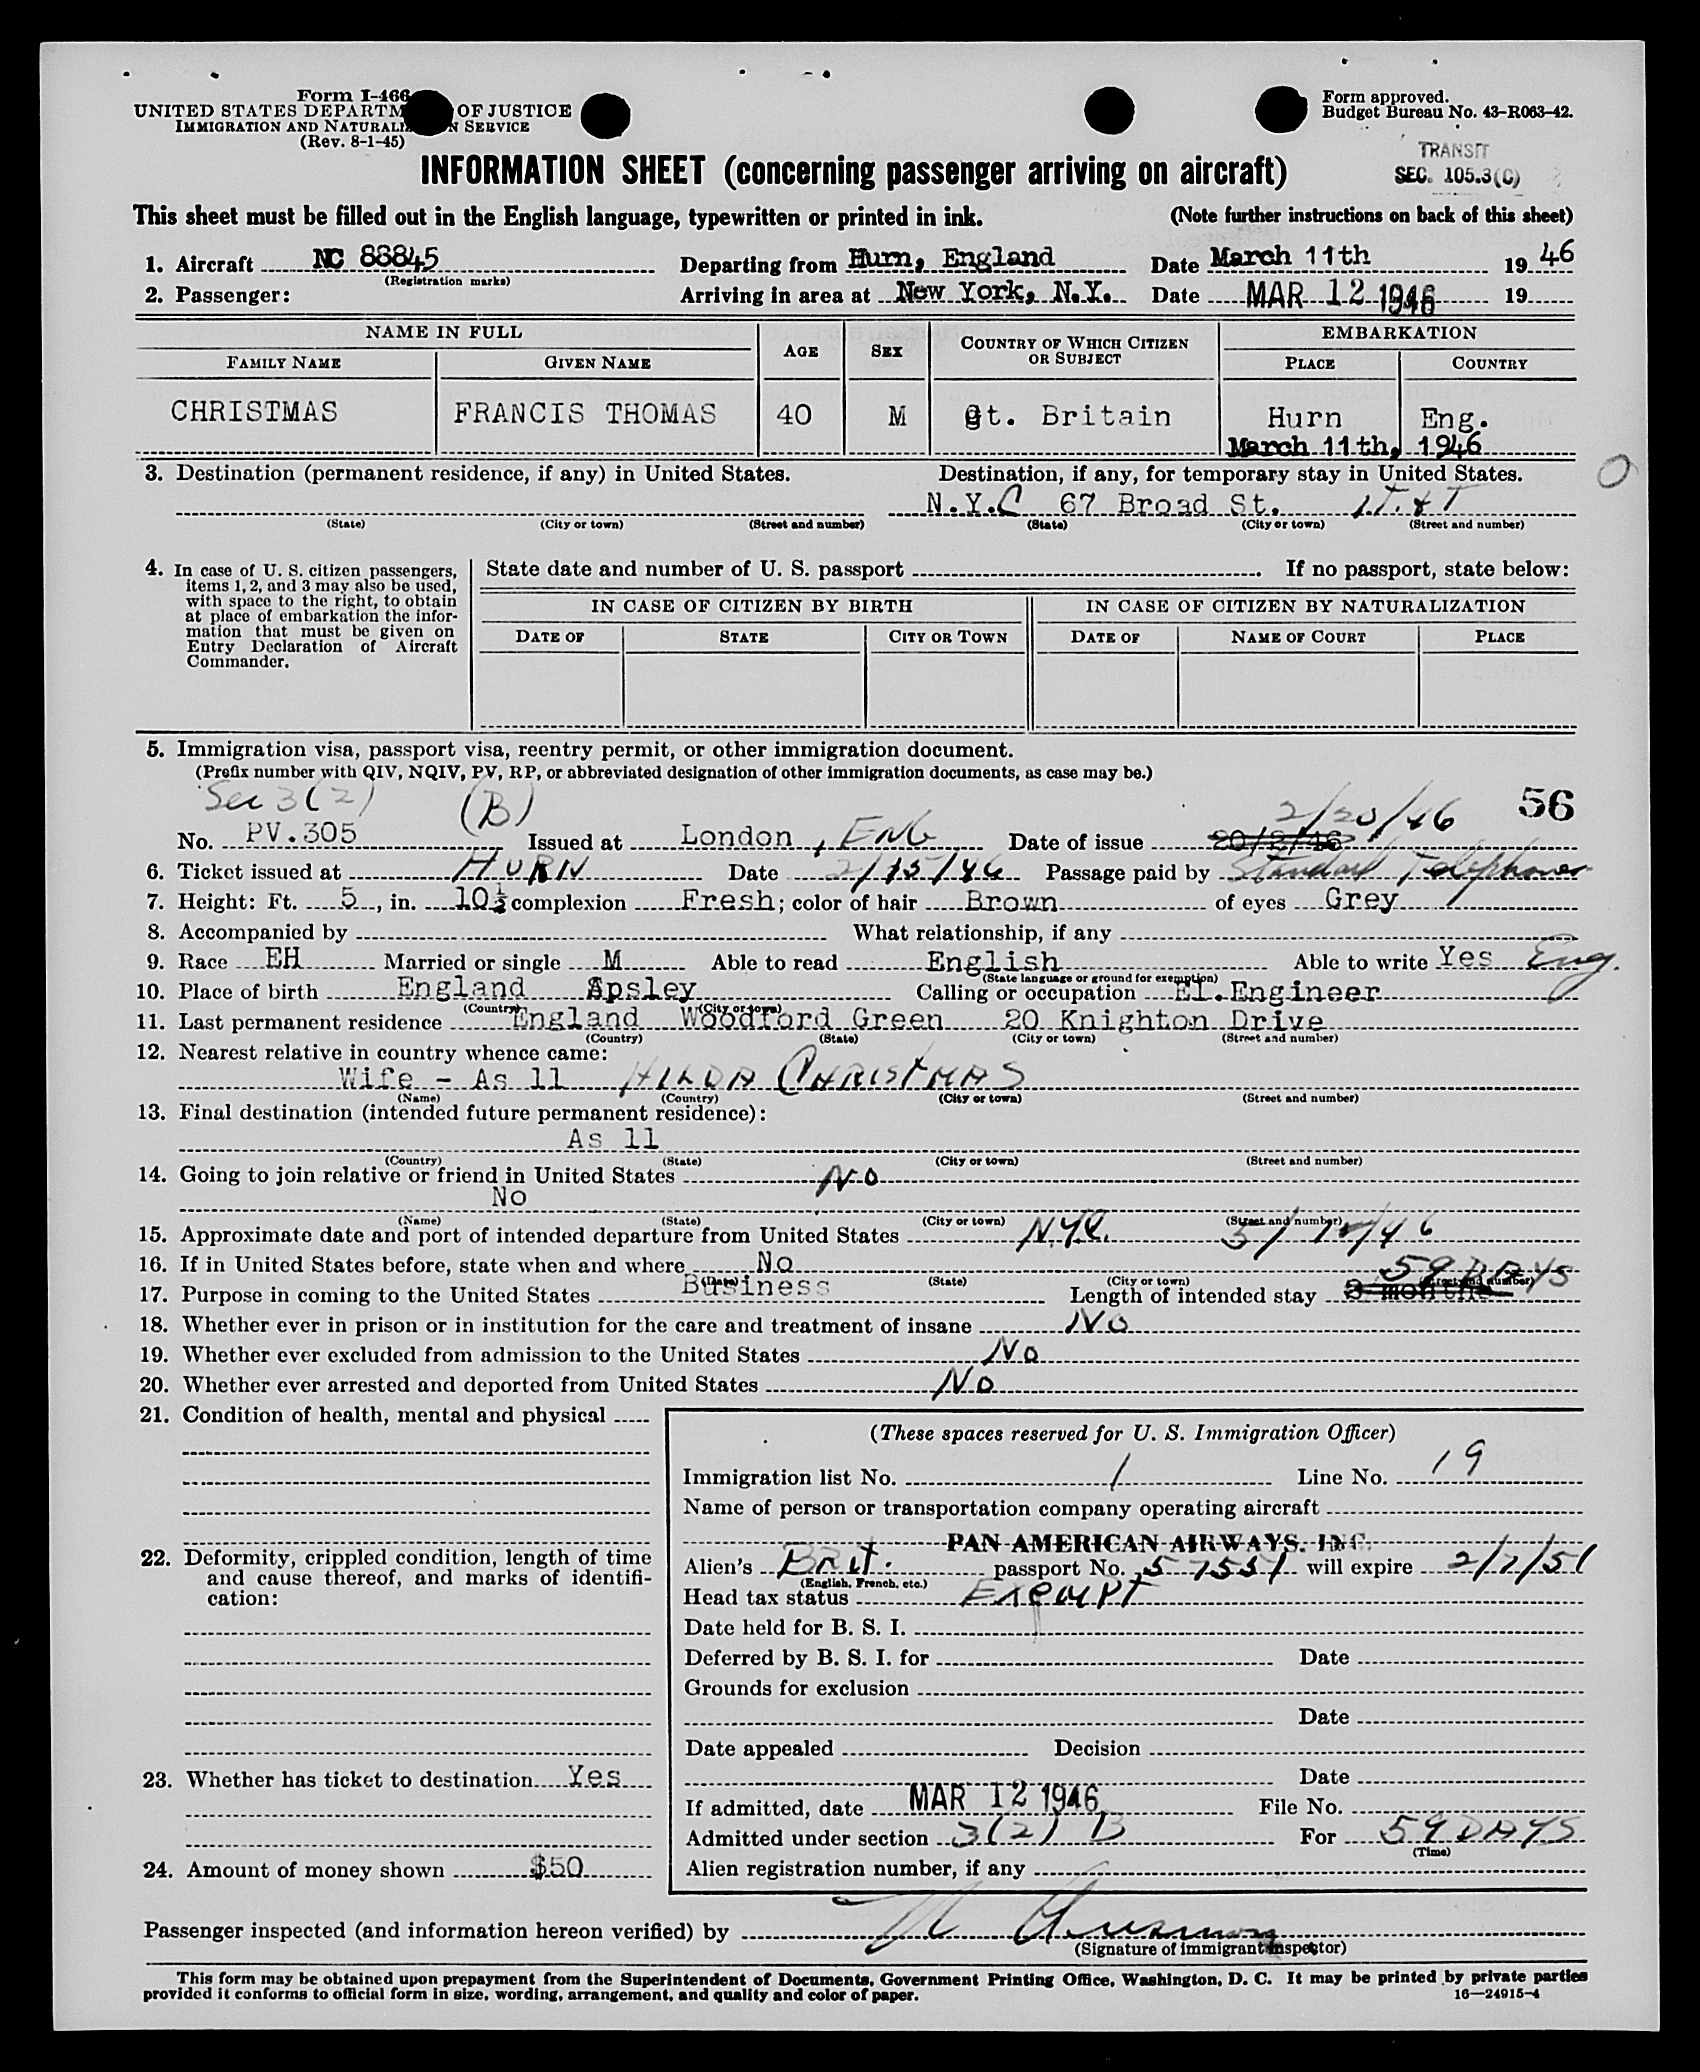 Form I-466
UNITED STATES DEPARTM OF JUSTICE
IMMIGRATION AND NATURALI N SERVICE
(Rev. 8-1-45)
Form approved.
Budget Bureau No. 43-R063-42.
TRANSIT
SEC. 105.3(C)
INFORMATION SHEET (concerning passenger arriving on aircraft)
This sheet must be filled out in the English language, typewritten or printed in ink. (Note further instructions on back of this sheet)
1. Aircraft NC 88845 Departing from Hurn, England Date March 11th 1946
(Registration marks)
2. Passenger: Arriving in area at New York, N.Y. Date MAR 12 1946 19
NAME IN FULL AGE SEX COUNTRY OF WHICH CITIZEN OR SUBJECT EMBARKATION
FAMILY NAME GIVEN NAME PLACE COUNTRY
CHRISTMAS FRANCIS THOMAS 40 M Gt. Britain Hurn Eng.
March 11th, 1946
3. Destination (permanent residence, if any) in United States. Destination, if any, for temporary stay in United States.
N.Y.C 67 Broad St. I.T.&T
(State) (City or town) (Street and number) (State) (City or town) (Street and number)
4. In case of U. S. citizen passengers, items 1, 2, and 3 may also be used, with space to the right, to obtain at place of embarkation the information that must be given on Entry Declaration of Aircraft Commander.
State date and number of U. S. passport . If no passport, state below:
IN CASE OF CITIZEN BY BIRTH IN CASE OF CITIZEN BY NATURALIZATION
DATE OF STATE CITY OR TOWN DATE OF NAME OF COURT PLACE
5. Immigration visa, passport visa, reentry permit, or other immigration document.
(Prefix number with QIV, NQIV, PV, RP, or abbreviated designation of other immigration documents, as case may be.)
Sec 3(2) (B) 2/20/46 56
No. PV.305 Issued at London, ENG Date of issue 20/2/46
6. Ticket issued at HURN Date 2/15/46 Passage paid by Standard Telephones
7. Height: Ft. 5, in. 10½ complexion Fresh; color of hair Brown of eyes Grey
8. Accompanied by What relationship, if any
9. Race EH Married or single M Able to read English Able to write Yes Eng.
(State language or ground for exemption)
10. Place of birth England Apsley Calling or occupation El.Engineer
(Country) (City or town)
11. Last permanent residence England Woodford Green 20 Knighton Drive
(Country) (State) (City or town) (Street and number)
12. Nearest relative in country whence came:
Wife - As 11 HILDA CHRISTMAS
(Name) (Country) (City or town) (Street and number)
13. Final destination (intended future permanent residence):
As 11
(Country) (State) (City or town) (Street and number)
14. Going to join relative or friend in United States No
No
(Name) (State) (City or town) (Street and number)
15. Approximate date and port of intended departure from United States N.Y.C. 5/10/46
16. If in United States before, state when and where No
(Date) (State) (City or town) (Street and number)
59 DAYS
17. Purpose in coming to the United States Business Length of intended stay 3 months
18. Whether ever in prison or in institution for the care and treatment of insane No
19. Whether ever excluded from admission to the United States No
20. Whether ever arrested and deported from United States No
21. Condition of health, mental and physical
22. Deformity, crippled condition, length of time and cause thereof, and marks of identification:
23. Whether has ticket to destination Yes
24. Amount of money shown $50
(These spaces reserved for U. S. Immigration Officer)
Immigration list No. 1 Line No. 19
Name of person or transportation company operating aircraft
PAN AMERICAN AIRWAYS. INC.
Alien's Brit. passport No. 57551 will expire 2/7/51
(English, French, etc.)
Head tax status Exempt
Date held for B. S. I.
Deferred by B. S. I. for Date
Grounds for exclusion
Date
Date appealed Decision
Date
If admitted, date MAR 12 1946 File No.
Admitted under section 3(2) B For 59 DAYS
(Time)
Alien registration number, if any
Passenger inspected (and information hereon verified) by
(Signature of immigrant inspector)
This form may be obtained upon prepayment from the Superintendent of Documents, Government Printing Office, Washington, D. C. It may be printed by private parties
provided it conforms to official form in size, wording, arrangement, and quality and color of paper. 16—24915-4